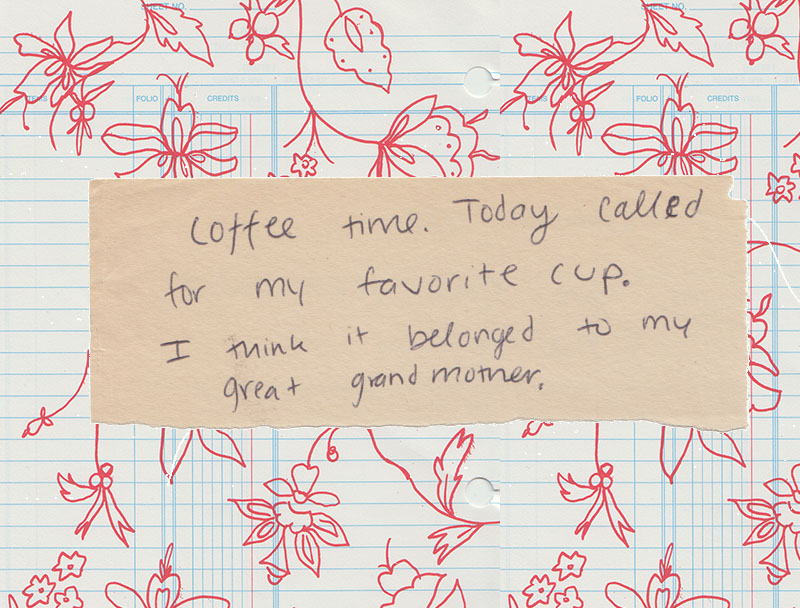 SHEET NO.
SHEET NO.
ITEMS FOLIO CREDITS
ITEMS FOLIO CREDITS
coffee time. Today called
for my favorite cup.
I think it belonged to my
great grandmother.